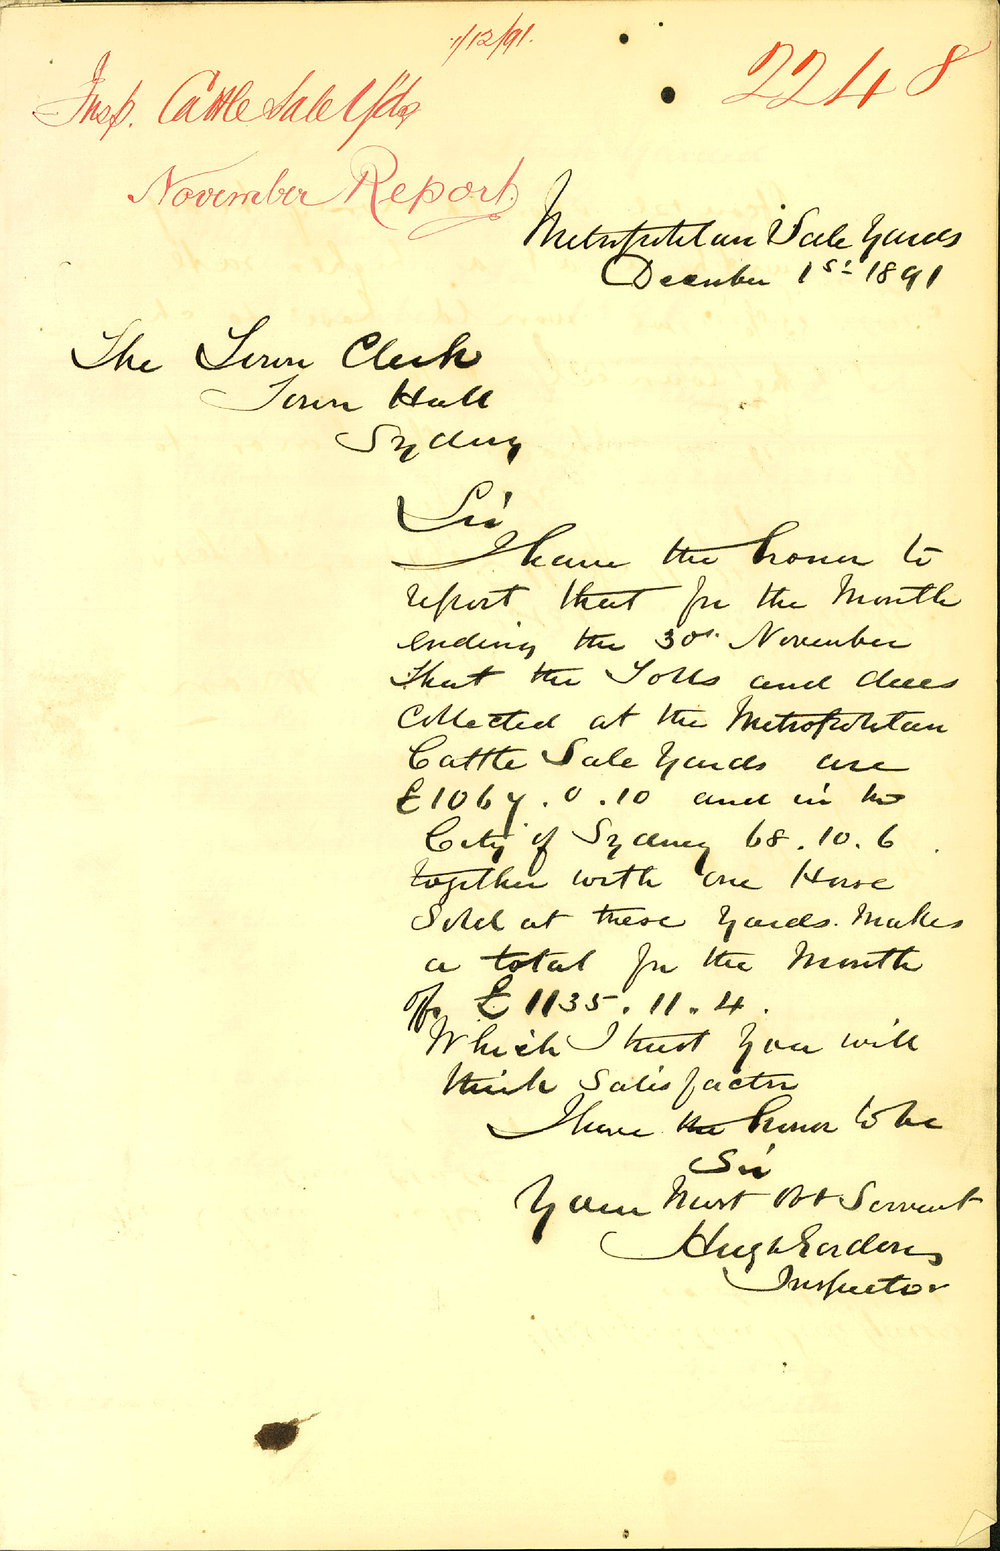 1/12/91.
2248
Insp. Cattle Sale Yds
November Report.
Metropolitan Sale Yards
December 1st 1891
The Town Clerk
Town Hall
Sydney
Sir
I have the honor to
report that for the Month
ending the 30th November
that the Tolls and dues
Collected at the Metropolitan
Cattle Sale Yards are
£1067.0.10 and in the
City of Sydney 68.10.6
together with one Horse
Sold at these Yards. Makes
a total for the Month
of £1135.11.4.
Which I trust you will
think Satisfactory
I have the honor to be
Sir
Your Most Obt Servant
Hugh Gordon
Inspector